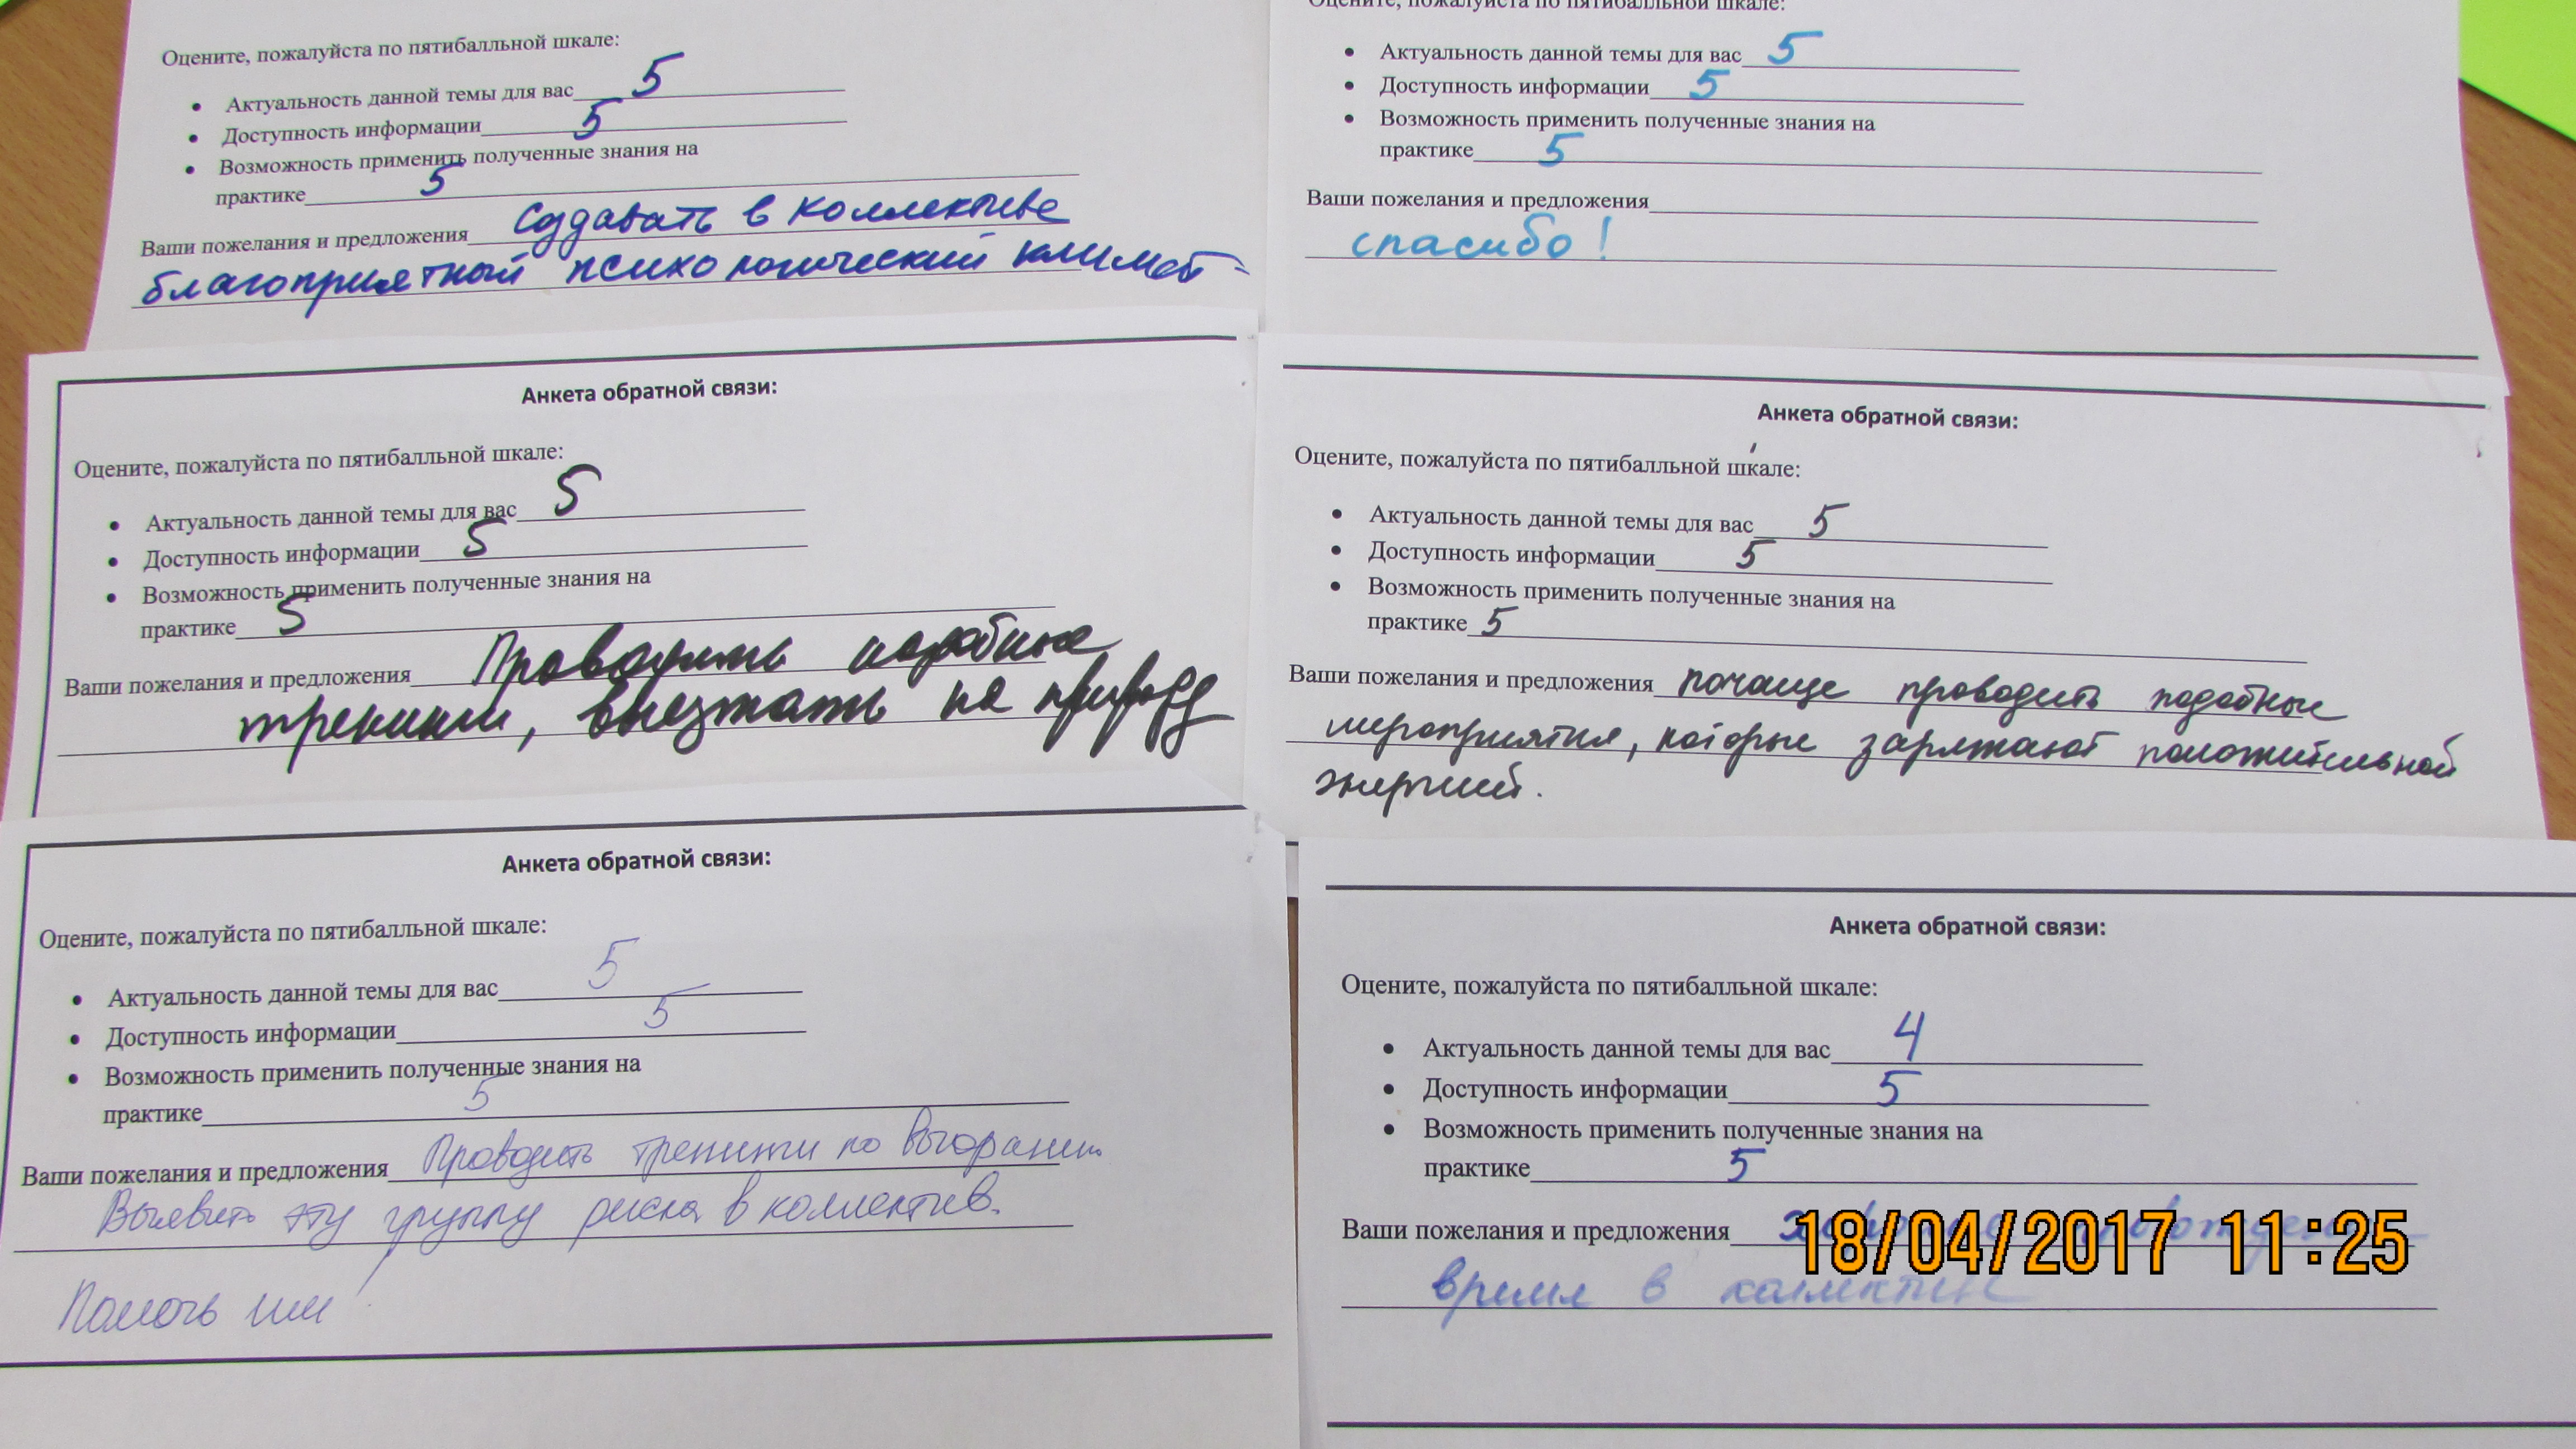 Оцените, пожалуйста по пятибалльной шкале:
• Актуальность данной темы для вас 5
• Доступность информации 5
• Возможность применить полученные знания на
практике 5
Ваши пожелания и предложения создавать в коллективе
благоприятный психологический климат
Оцените, пожалуйста по пятибалльной шкале:
• Актуальность данной темы для вас 5
• Доступность информации 5
• Возможность применить полученные знания на
практике 5
Ваши пожелания и предложения
спасибо!
Анкета обратной связи:
Оцените, пожалуйста по пятибалльной шкале:
• Актуальность данной темы для вас 5
• Доступность информации 5
• Возможность применить полученные знания на
практике 5
Ваши пожелания и предложения Проводить подобные
тренинги, выезжать на природу
Анкета обратной связи:
Оцените, пожалуйста по пятибалльной шкале:
• Актуальность данной темы для вас 5
• Доступность информации 5
• Возможность применить полученные знания на
практике 5
Ваши пожелания и предложения почаще проводить подобные
мероприятия, которые заряжают положительной
энергией.
Анкета обратной связи:
Оцените, пожалуйста по пятибалльной шкале:
• Актуальность данной темы для вас 5
• Доступность информации 5
• Возможность применить полученные знания на
практике 5
Ваши пожелания и предложения Проводить тренинги по выгоранию.
Выявить эту группу риска в коллектив.
Помочь им!
Анкета обратной связи:
Оцените, пожалуйста по пятибалльной шкале:
• Актуальность данной темы для вас 4
• Доступность информации 5
• Возможность применить полученные знания на
практике 5
Ваши пожелания и предложения
18/04/2017 11:25
время в коллективе